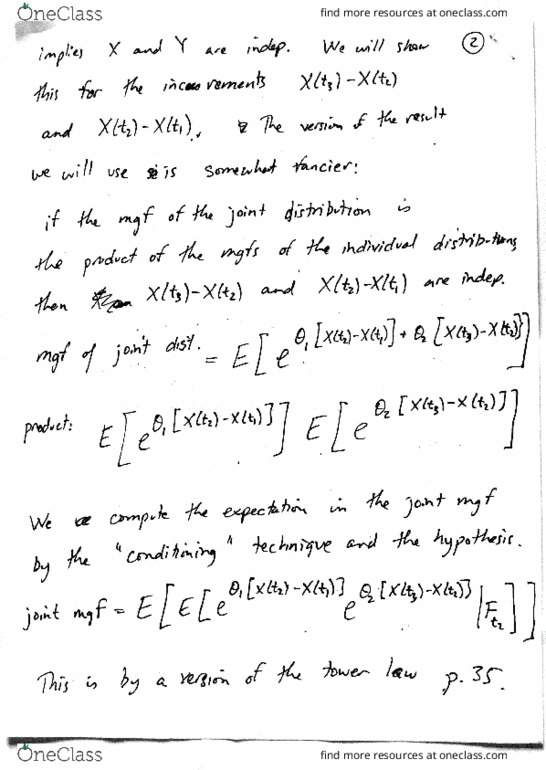 OneClass find more resources at oneclass.com
implies X and Y are indep. We will show 2
this for the increments X(t₃)-X(t₂)
and X(t₂)-X(t₁). The version of the result
we will use is somewhat fancier:
if the mgf of the joint distribution is
the product of the mgfs of the individual distributions
then X(t₃)-X(t₂) and X(t₂)-X(t₁) are indep.
mgf of joint dist. = E[e^{θ₁[X(t₂)-X(t₁)] + θ₂[X(t₃)-X(t₂)]}]
product: E[e^{θ₁[X(t₂)-X(t₁)]}] E[e^{θ₂[X(t₃)-X(t₂)]}]
We compute the expectation in the joint mgf
by the "conditioning" technique and the hypothesis.
joint mgf = E[E[e^{θ₁[X(t₂)-X(t₁)]} e^{θ₂[X(t₃)-X(t₂)]} | F_{t₂}]]
This is by a version of the tower law p.35.
OneClass find more resources at oneclass.com